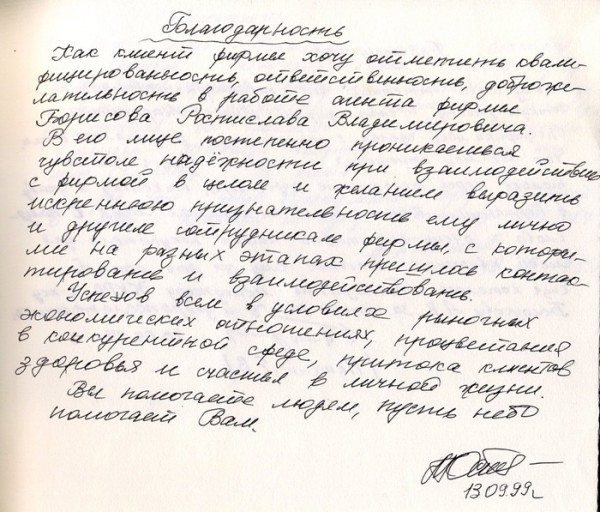 Благодарность
Как клиент фирмы хочу отметить квали-
фицированность, ответственность, доброже-
лательность в работе агента фирмы
Борисова Ростислава Владимировича.
В его лице постепенно проникаешься
чувством надёжности при взаимодействии
с фирмой в целом и желанием выразить
искреннюю признательность ему лично
и другим сотрудникам фирмы, с которы-
ми на разных этапах пришлось контак-
тировать и взаимодействовать.
Успехов всем в условиях рыночных
экономических отношениях, процветания
в конкурентной среде, притока клиентов
здоровья и счастья в личной жизни.
Вы помогаете людям, пусть небо
помогает Вам.
13.09.99г.